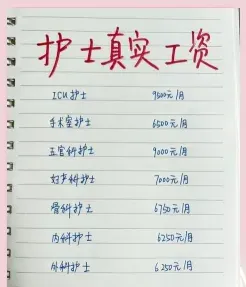 护士真实工资
ICU护士 9500元/月
手术室护士 6500元/月
五官科护士 9000元/月
妇产科护士 7000元/月
骨科护士 6750元/月
内科护士 6250元/月
外科护士 6250元/月